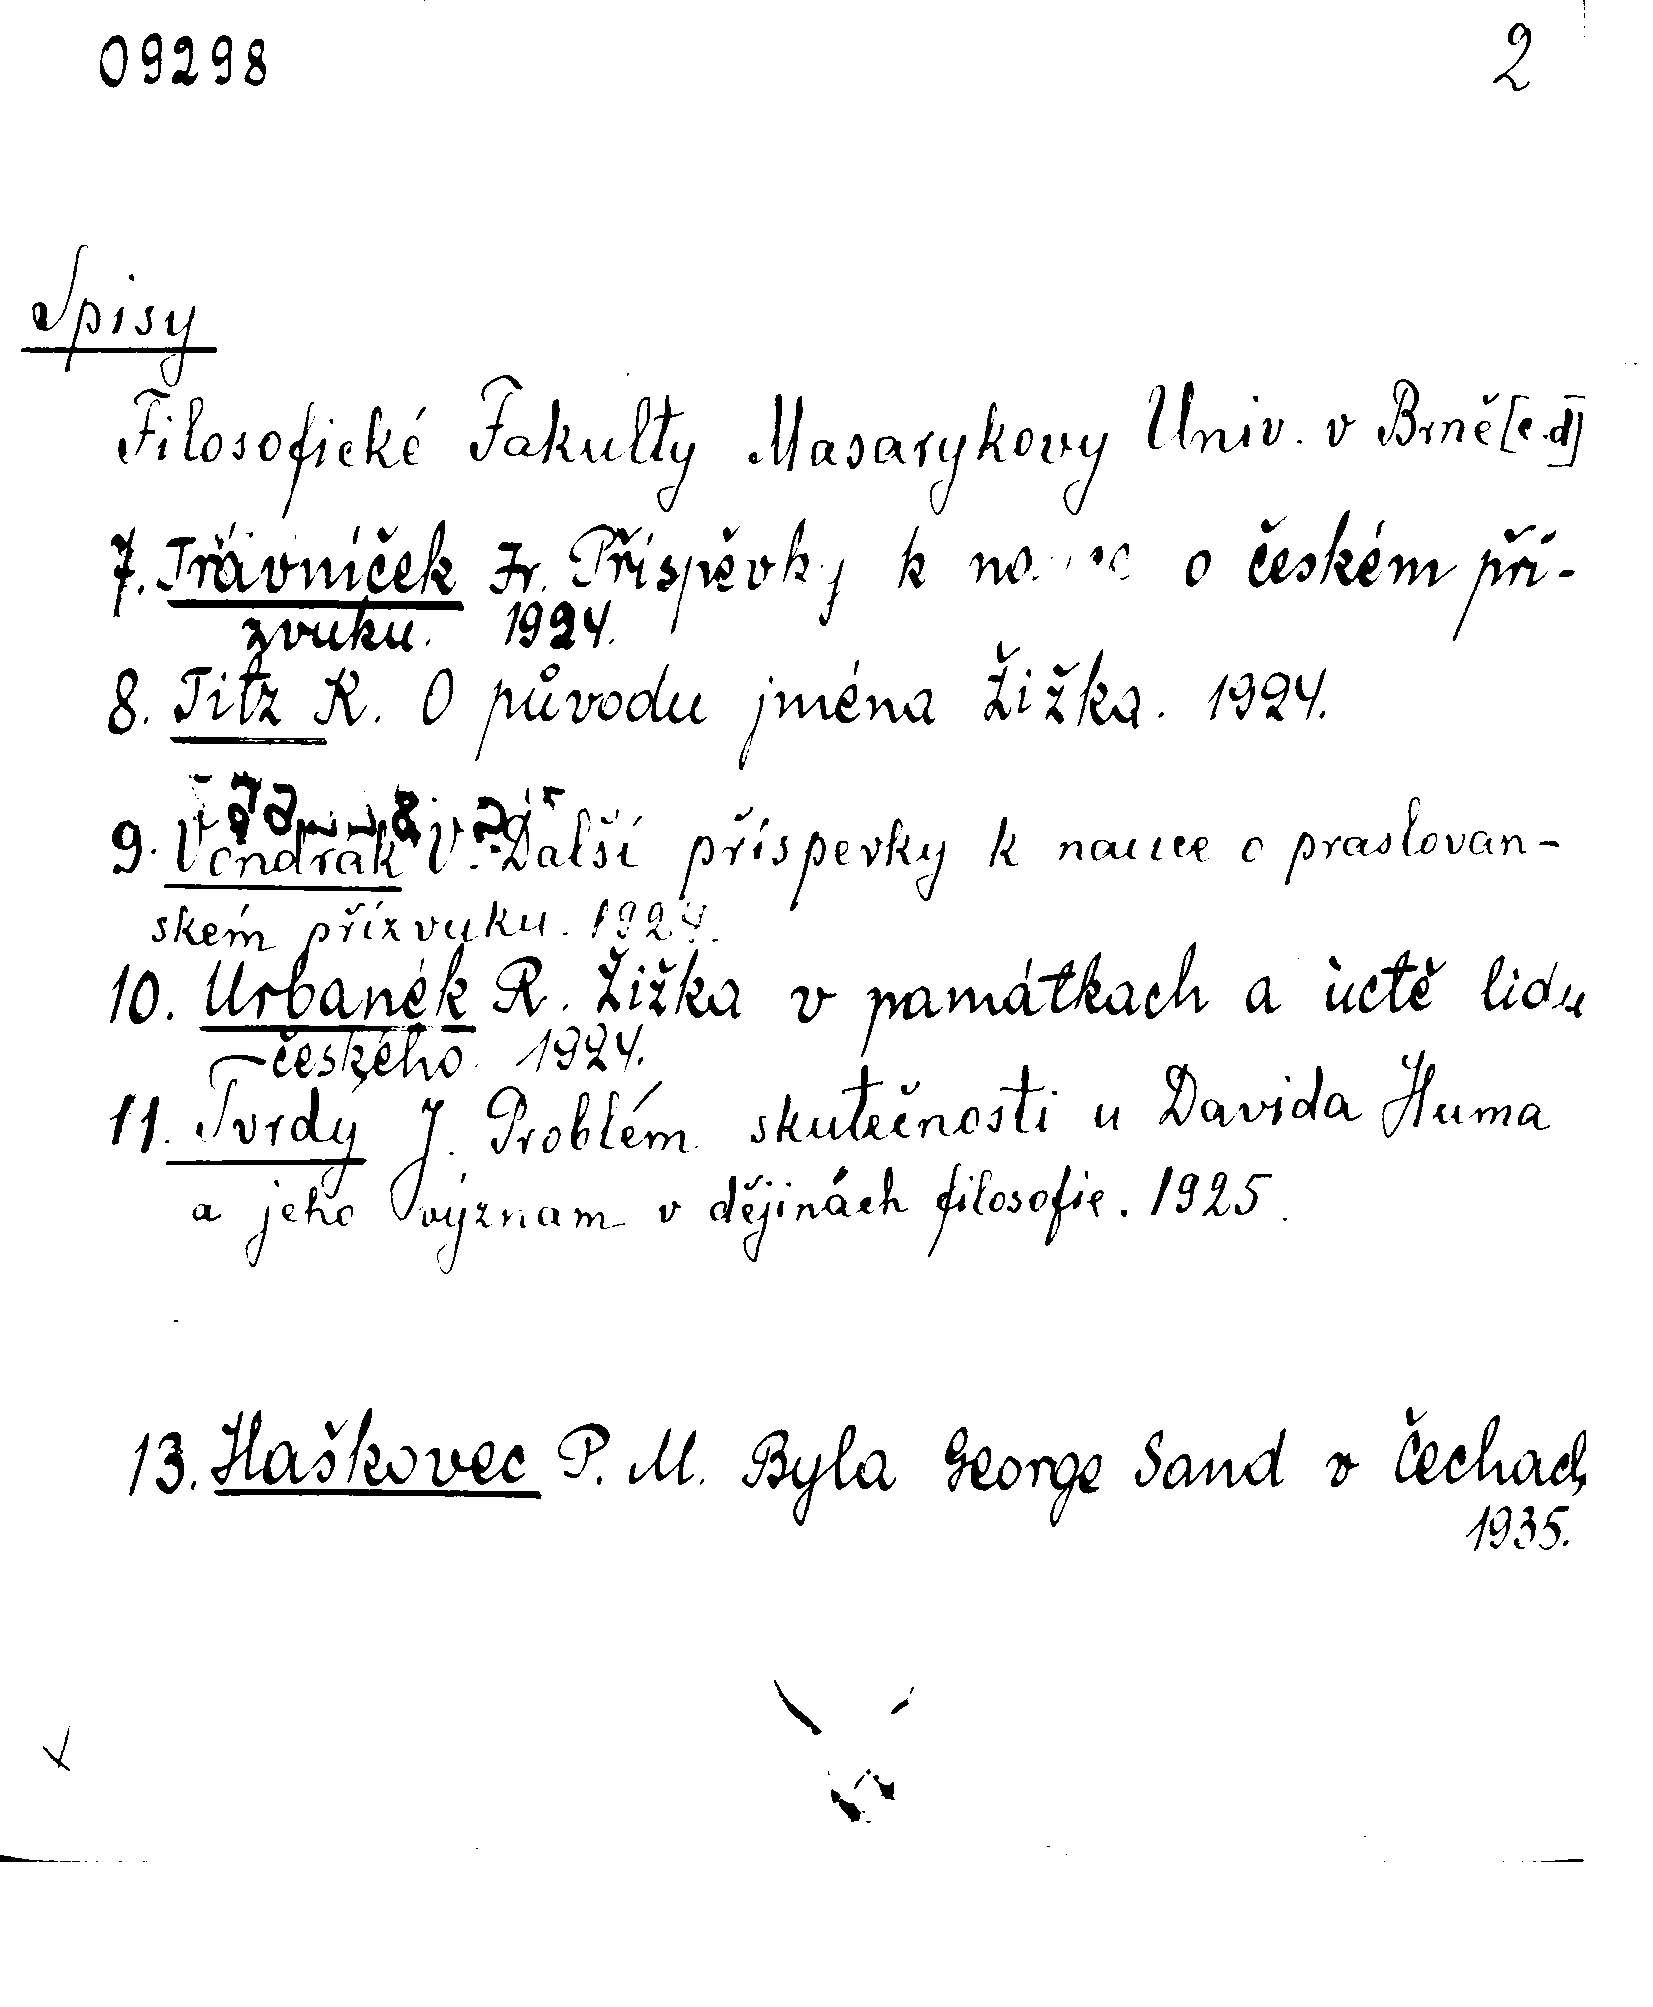 09298 2
Spisy
Filosofické Fakulty Masarykovy Univ. v Brně [c.d]
7. Trávníček Fr. Příspěvky k o českém pří-
zvuku. 1924.
8. Titz K. O původu jména Žižka. 1924.
9. Vondrák V. Další příspevky k nauce o praslovan-
ském přízvuku. 1924.
10. Urbanék R. Žižka v památkach a úctě lidu
českého. 1924.
11. Tvrdý J. Problém skutečnosti u Davida Huma
a jeho význam v dějinách filosofie. 1925.
13. Haškovec P. M. Byla George Sand v Čechach
1935.